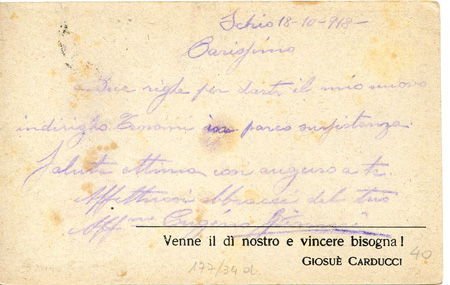 Schio 18-10-918-
Carissimo
Due righe per darti il mio nuovo
indirizzo in parco sussistenza.
Salute ottima con auguro a te.
Affettuosi abbracci dal tuo
Aff Eugenio
Venne il dì nostro e vincere bisogna!
GIOSUÈ CARDUCCI
40
177/34 d.